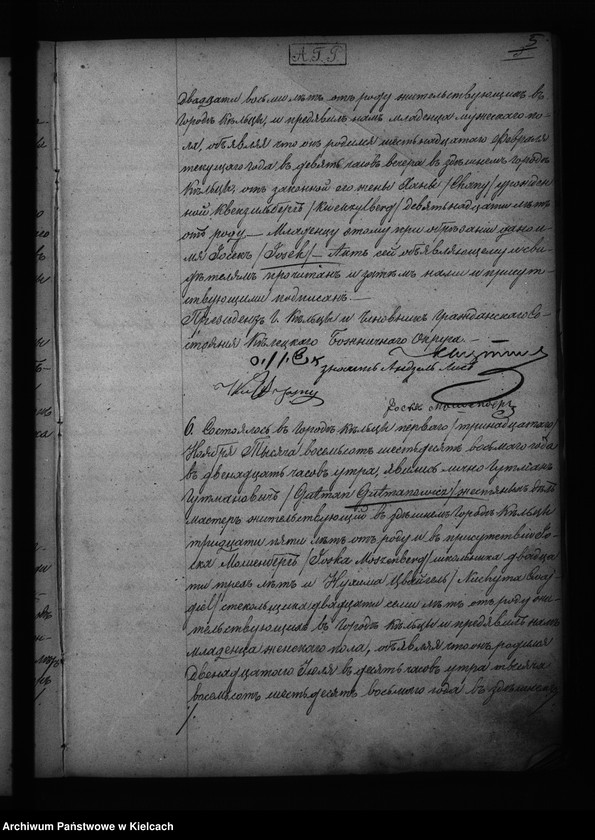 5
А.Г.Г.
двадцати восьми лѣтъ отъ роду жительствующихъ въ
городѣ Кѣльцы и предъявилъ намъ младенца мужескаго по-
ла, объявляя что онъ родился шестнадцатаго Февраля
текущаго года въ девять часовъ вечера въ здѣшнемъ городѣ
Кѣльцы, отъ законной его жены Ханы /Chany/ урожден-
ной Квензильбергъ /Kwenzylberg/ девятнадцати лѣтъ
отъ роду — Младенцу этому при обрѣзаніи дано и-
мя Іосекъ /Josek/ — Актъ сей объявляющему и сви-
дѣтелямъ прочитанъ и затѣмъ нами и присут-
ствующими подписанъ —
Президентъ г. Кѣльцы и Чиновникъ Гражданскаго Со-
стоянія Кѣлецкаго Божничнаго Округа —
6. Состоялось въ городѣ Кѣльцы перваго /тринадцатаго/
Ноября Тысяча восемьсотъ шестьдесятъ восьмаго года
въ двенадцать часовъ утра, явился лично Гутманъ
Гутмановичъ /Gutman Gutmanowicz/ жестяныхъ дѣлъ
мастеръ жительствующій въ здѣшнемъ городѣ Кѣльцы
тридцати пяти лѣтъ отъ роду и въ присутствіи Іо-
ска Мошенберга /Joska Moszenberg/ школьника двадца
ти трехъ лѣтъ и Нухима
стекольщика двадцати семи лѣтъ отъ роду жи-
тельствующихъ въ городѣ Кѣльцы и предъявилъ намъ
младенца женскаго пола, объявляя что онъ родился
двенадцатаго Іюля въ десять часовъ утра тысяча
восемьсотъ шестьдесятъ восьмаго года въ здѣшнемъ
Archiwum Państwowe w Kielcach